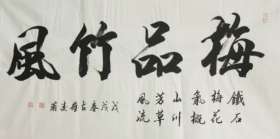 梅品竹風
鐵石梅花氣概
山川芳草風流
戊戌春